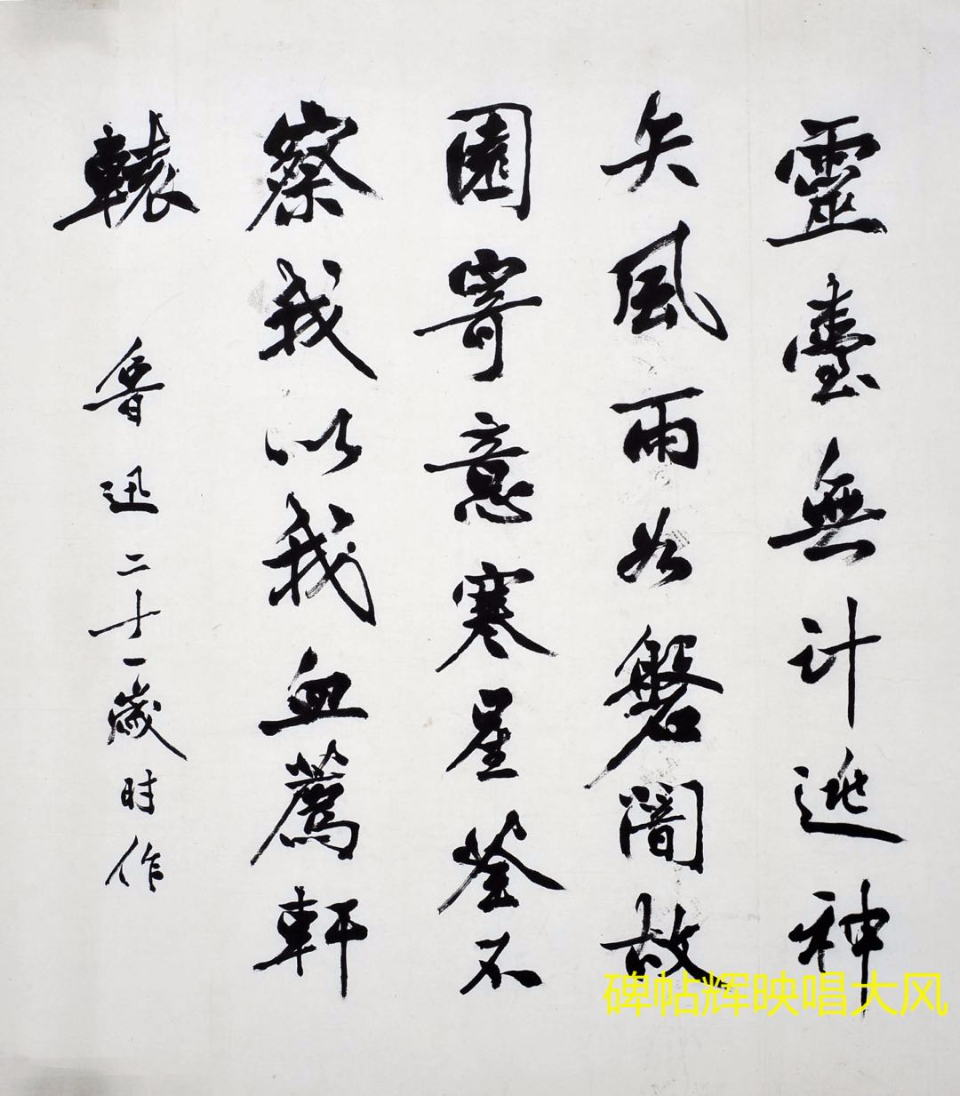 靈臺無計逃神
矢風雨如磐闇故
園寄意寒星荃不
察我以我血薦軒
轅
魯迅二十一歲时作
碑帖辉映唱大风